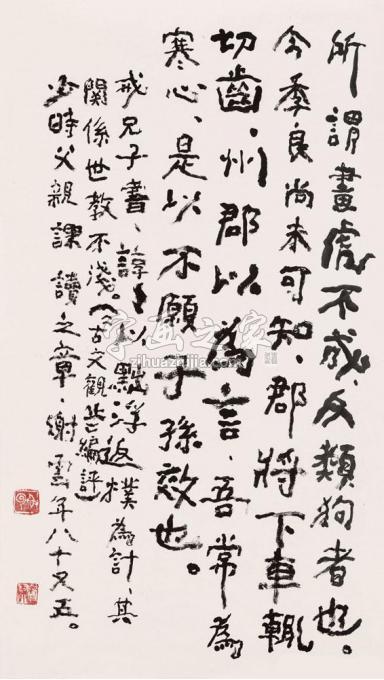 所謂畫虎不成,反類狗者也。
今季良尚未可知,郡將下車輒
切齒,州郡以為言,吾常為
寒心,是以不願子孫效也。
戒兄子書,諄諄以黜浮返樸為計,其
關係世教不淺。《古文觀止》編評
少時父親課讀之章,謝雲年八十又五。
字画之家
zihuazhijia.com